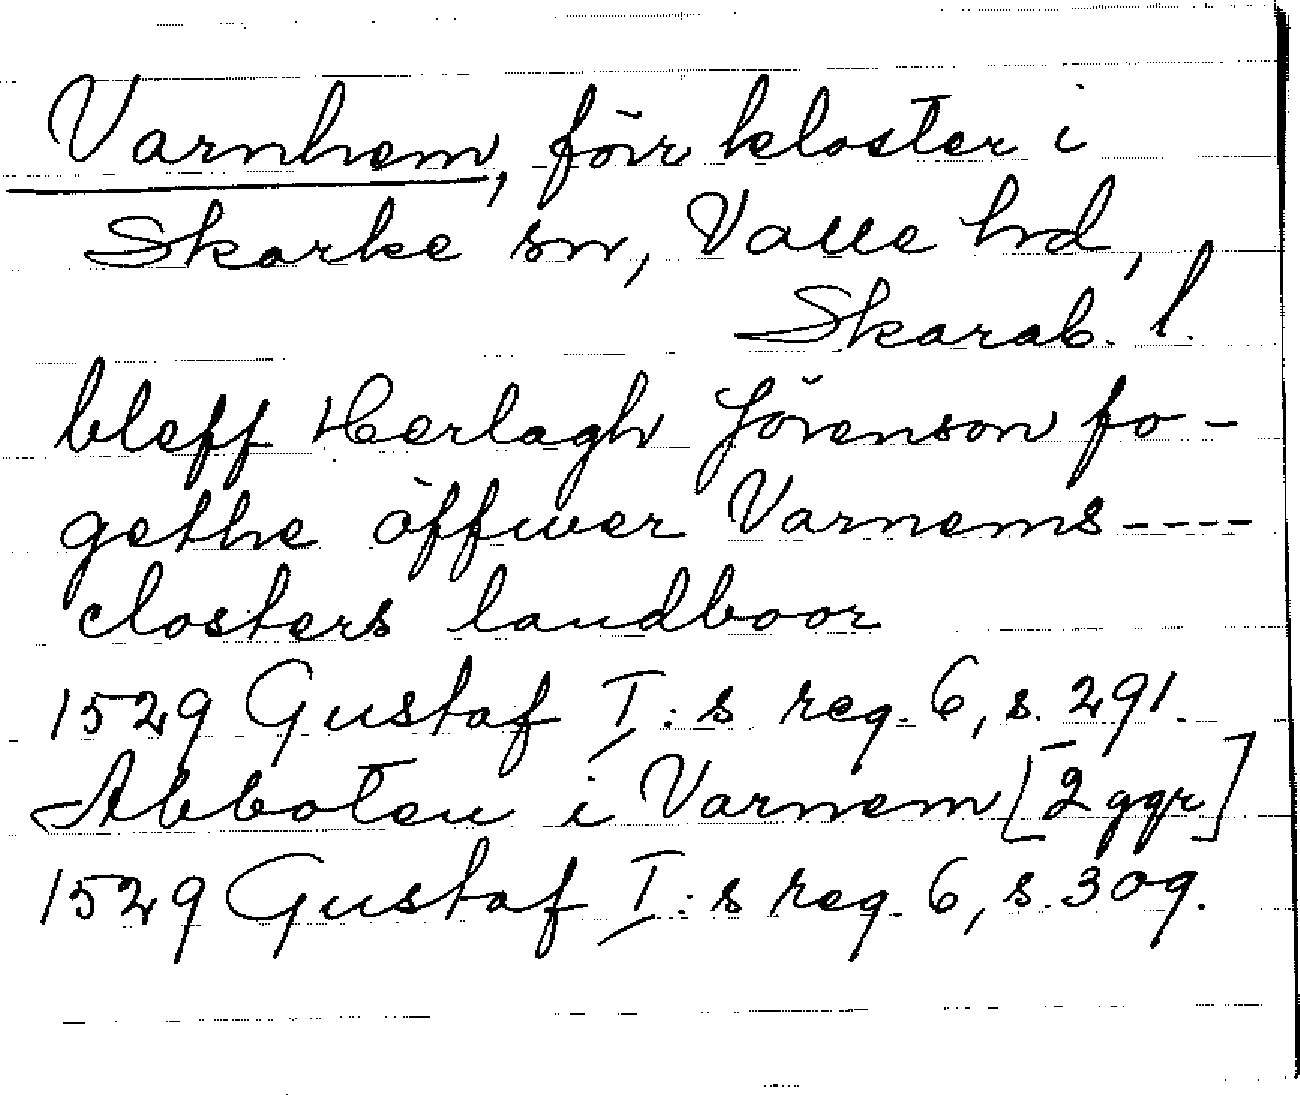 Varnhem, förr kloster i
Skarke sn, Valle hd,
Skarab. l.
bleff Herlagh Jörenson fo-
gethe öffwer Varnems ----
closters landboor
1529 Gustaf I:s reg. 6, s. 291.
Abboten i Varnem [2 ggr]
1529 Gustaf I:s reg. 6, s. 309.